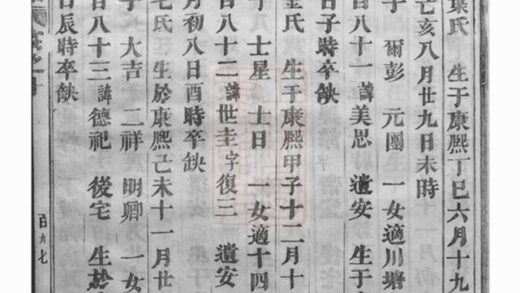 葉氏 生于康熙丁巳六月十九
乙亥八月廿九日未時
子 爾彭 元團 一女適川塘
百八十一 諱美思 遺安 生于
日子時卒缺
金氏 生于康熙甲子十二月十
子 士星 士日 一女適十四
百八十二 諱世圭 字復三 遺安
月初八日酉時卒缺
毛氏 生於康熙己未十一月廿
子 大吉 二祥 明卿 一女
百八十三 諱德祀 後宅 生於
日辰時卒缺
百六七